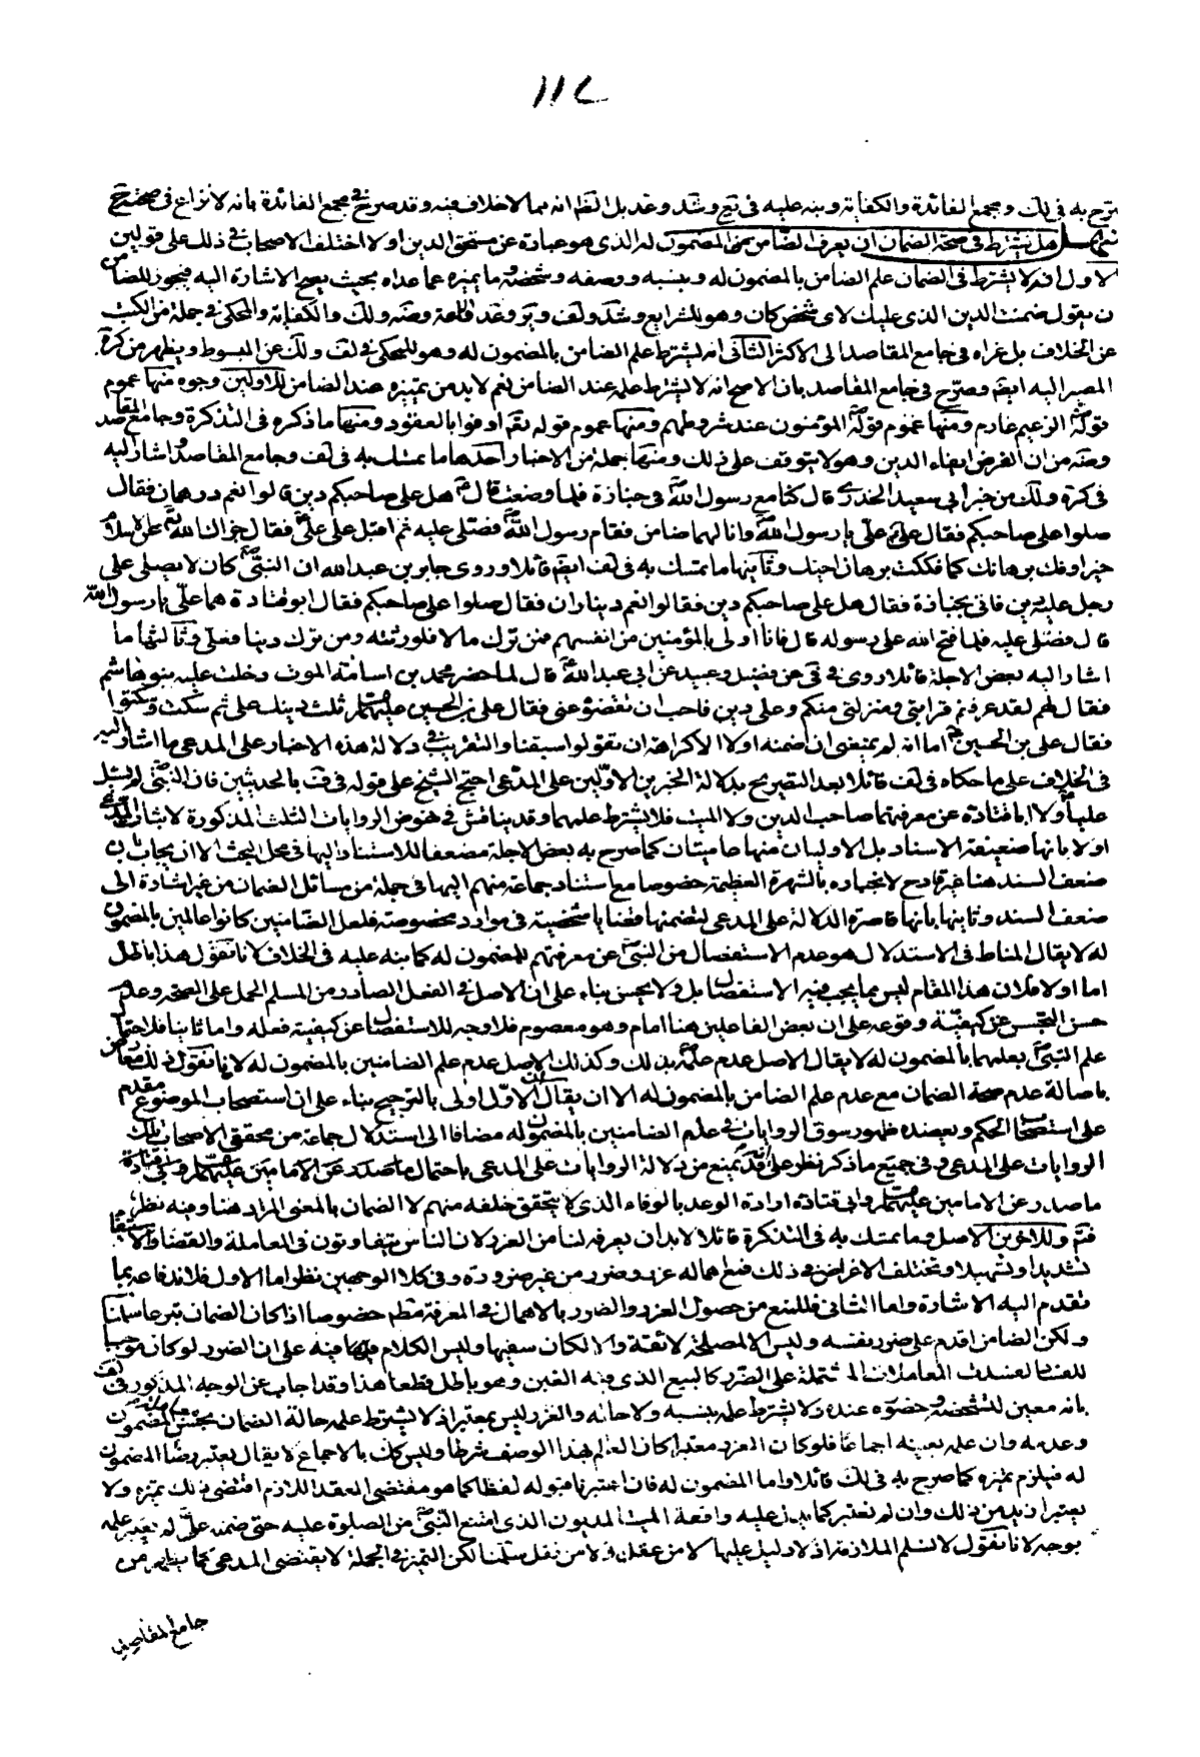 صرّح به في لك ومجمع الفائدة والكفاية ونبه عليه في تع وشد وعد بل الظ انه مما لا خلاف فيه وقد صرح في مجمع الفائدة بانه لا نزاع في صحته ح
هل يشترط في صحة الضمان ان يعرف الضامن المضمون له الذى هو عبادة عن مستحق الدين او لا اختلف الاصحاب في ذلك على قولين
الاول انه لا يشترط فى الضمان علم الضامن بالمضمون له وبنسبه ووصفه وشخصه وما يميزه عما عداه بحيث يصح الاشارة اليه فيجوز للضامن
ن يقول ضمنت الدين الذى عليك لاى شخص كان وهو للشرايع وشد ولف وير وعد واللمعة وضه ولك والكفاية والمحكى في جملة من الكتب
عن الخلاف بل عزاه في جامع المقاصد الى الاكثر الثانى انه يشترط علم الضامن بالمضمون له وهو للمحكى في لف ولك عن المبسوط ويظهر من كرة
المصير اليه ايضا وصرّح في جامع المقاصد بان الاصح انه لا يشترط علمه عند الضامن نعم لا بد من تميزه عند الضامن للاولين وجوه منها عموم
قوله الزعيم غارم ومنها عموم قوله المؤمنون عند شروطهم ومنها عموم قوله تعم اوفوا بالعقود ومنها ما ذكره فى التذكرة وجامع المقاصد
وضه من ان الغرض ايفاء الدين وهو لا يتوقف على ذلك ومنها جملة من الاخبار احدها ما تمسك به في لف وجامع المقاصد واشار اليه
في كرة ولك من خبر ابي سعيد الخدرى قال كنا مع رسول الله فى جنازة فلما وضعت قال هل على صاحبكم دين قالوا نعم درهمان فقال
صلوا على صاحبكم فقال على على يا رسول الله وانا لهما ضامن فقام رسول الله فصلى عليه ثم اقبل على على فقال جزاك الله عن الاسلام
خيرا وفك برهانك كما فككت برهان اخيك وثانيها ما تمسك به في لف ايضا قائلا وروى جابر بن عبد الله ان النبى كان لا يصلى على
رجل عليه دين فاتى بجنازة فقال هل على صاحبكم دين فقالوا نعم ديناران فقال صلوا على صاحبكم فقال ابو قتادة هما علىّ يا رسول الله
قال فصلى عليه فلما فتح الله على رسوله قال فانا اولى بالمؤمنين من انفسهم فمن ترك مالا فلورثته ومن ترك دينا فعلىّ وثالثها ما
اشار اليه بعض الاجلة قائلا روى فى عن فضيل وعبيد عن ابي عبد الله قال لما حضر محمد بن اسامة الموت دخلت عليه بنو هاشم
فقال لهم لقد عرفتم قرابتى ومنزلتى منكم وعلى دين فاحب ان تقضوه عنى فقال على بن الحسين ثلث دينك على ثم سكت وسكتوا
فقال على بن الحسين اما انه لم يمنعنى ان اضمنه اولا الا كراهة ان تقولوا سبقنا والتقريب في دلالة هذه الاخبار على المدعى ما اشار اليه
فى الخلاف على ما حكاه فى لف قائلا بعد التصريح بدلالة الخبرين الاولين على المدّعى احتج الشيخ على قوله في ف بالحديثين فان النبى لم يسئل
عليا ولا ابا قتادة عن معرفتهما صاحب الدين ولا الميت فلا يشترط علمهما وقد يناقش في هنوض الروايات الثلث المذكورة لاثبات المدّعى
اولا بانها ضعيفة الاسناد بل الاوليان منها عاميتان كما صرح به بعض الاجلة مضعفا للاستناد اليها فى محل البحث الا ان يجاب بان
ضعف السند هنا غير قادح لانجباره بالشهرة العظيمة خصوصا مع استناد جماعة منهم اليها في جملة من مسائل الضمان من غير اشارة الى
ضعف السند وثانيها بانها قاصرة الدلالة على المدعى لتضمنها قضايا شخصية في موارد مخصوصة فلعل الضامنين كانوا عالمين بالمضمون
له لا يقال المناط فى الاستدلال هو عدم الاستفصال من النبى عن معرفتهم للمضمون له كما نبه عليه فى الخلاف لانا نقول هذا باطل
اما اولا فلان هذا المقام ليس مما يجب فيه الاستفصال بل ولا يحسن بناء على ان الاصل في الفعل الصادر من المسلم الحمل على الصحة وعدم
حسن التجسس عن كيفية وقوعه على ان بعض الفاعلين هنا امام وهو معصوم فلا وجه للاستفصال عن كيفية فعله واما ثانيا فلاحتمال
علم النبى بعلمهما بالمضمون له لا يقال الاصل عدم علمه بذلك وكذلك الاصل عدم علم الضامنين بالمضمون له لانا نقول ذلك معارض
باصالة عدم صحة الضمان مع عدم علم الضامن بالمضمون له الا ان يقال الاوّل اولى بالترجيح بناء على ان استصحاب الموضوع مقدم
على استصحاب الحكم ويعضده ظهور سوق الروايات في علم الضامنين بالمضمون له مضافا الى استدلال جماعة من محققى الاصحاب بتلك
الروايات على المدعى وفى جميع ما ذكر نظر على انه قد يمنع من دلالة الروايات على المدعى باحتمال ما صدر عن الامامين وابى قتادة
ما صدر عن الامامين وابى قتادة ارادة الوعد بالوفاء الذى لا يتحقق خلفه منهم لا الضمان بالمعنى المراد هنا وفيه نظر
فتم وللاخرين الاصل وما تمسك به فى التذكرة قائلا لا بد ان يعرفه لنامن الغرر لان الناس يتفاوتون فى المعاملة والقضاء والاستيفاء
تشديدا وتسهيلا وتختلف الاغراض فى ذلك فمع اهماله غرر وضرر من غير ضرورة وفى كلا الوجهين نظر اما الاول فلاندفاعه بما
تقدم اليه الاشارة واما الثانى فللمنع من حصول الغرر والضرر بالاهمال فى المعرفة مطم خصوصا اذا كان الضمان تبرعا سلمنا
ولكن الضامن اقدم على ضرر نفسه وليس الا لمصلحة لائقة والا لكان سفيها وليس الكلام فيه على ان الضرر لو كان موجبا
للفساد لفسدت المعاملات المشتملة على الضرر كالبيع الذى فيه الغبن وهو باطل قطعا هذا وقد اجاب عن الوجه المذكور في لف
بانه معين لتشخصه وحضوره عنده ولا يشترط علمه بنسبه ولا حاله والغرر ليس بمعتبر اذ لا يشترط علمه حالة الضمان بحسن المضمون
وعدمه وان علم بعينه اجماعا فلو كان الغرر معتبرا كان العلم بهذا الوصف شرطا وليس كك بالاجماع لا يقال يعتبر رضا المضمون
له فيلزم تميزه كما صرح به في لك قائلا واما المضمون له فان اعتبرنا قبوله لفظا كما هو مقتضى العقد اللازم اقتضى ذلك تميزه ولا
يعتبر ازيد من ذلك وان لم نعتبر كما يدل عليه واقعة الميت المديون الذى امتنع النبى من الصلوة عليه حتى ضمنه على لم يعتبر علمه
بوجه لانا نقول لا نسلم الملازمة اذ لا دليل عليها لا من عقل ولا من نقل سلمنا لكن التميز فى الجملة لا يقتضى المدعى كما من
جامع المقاصد